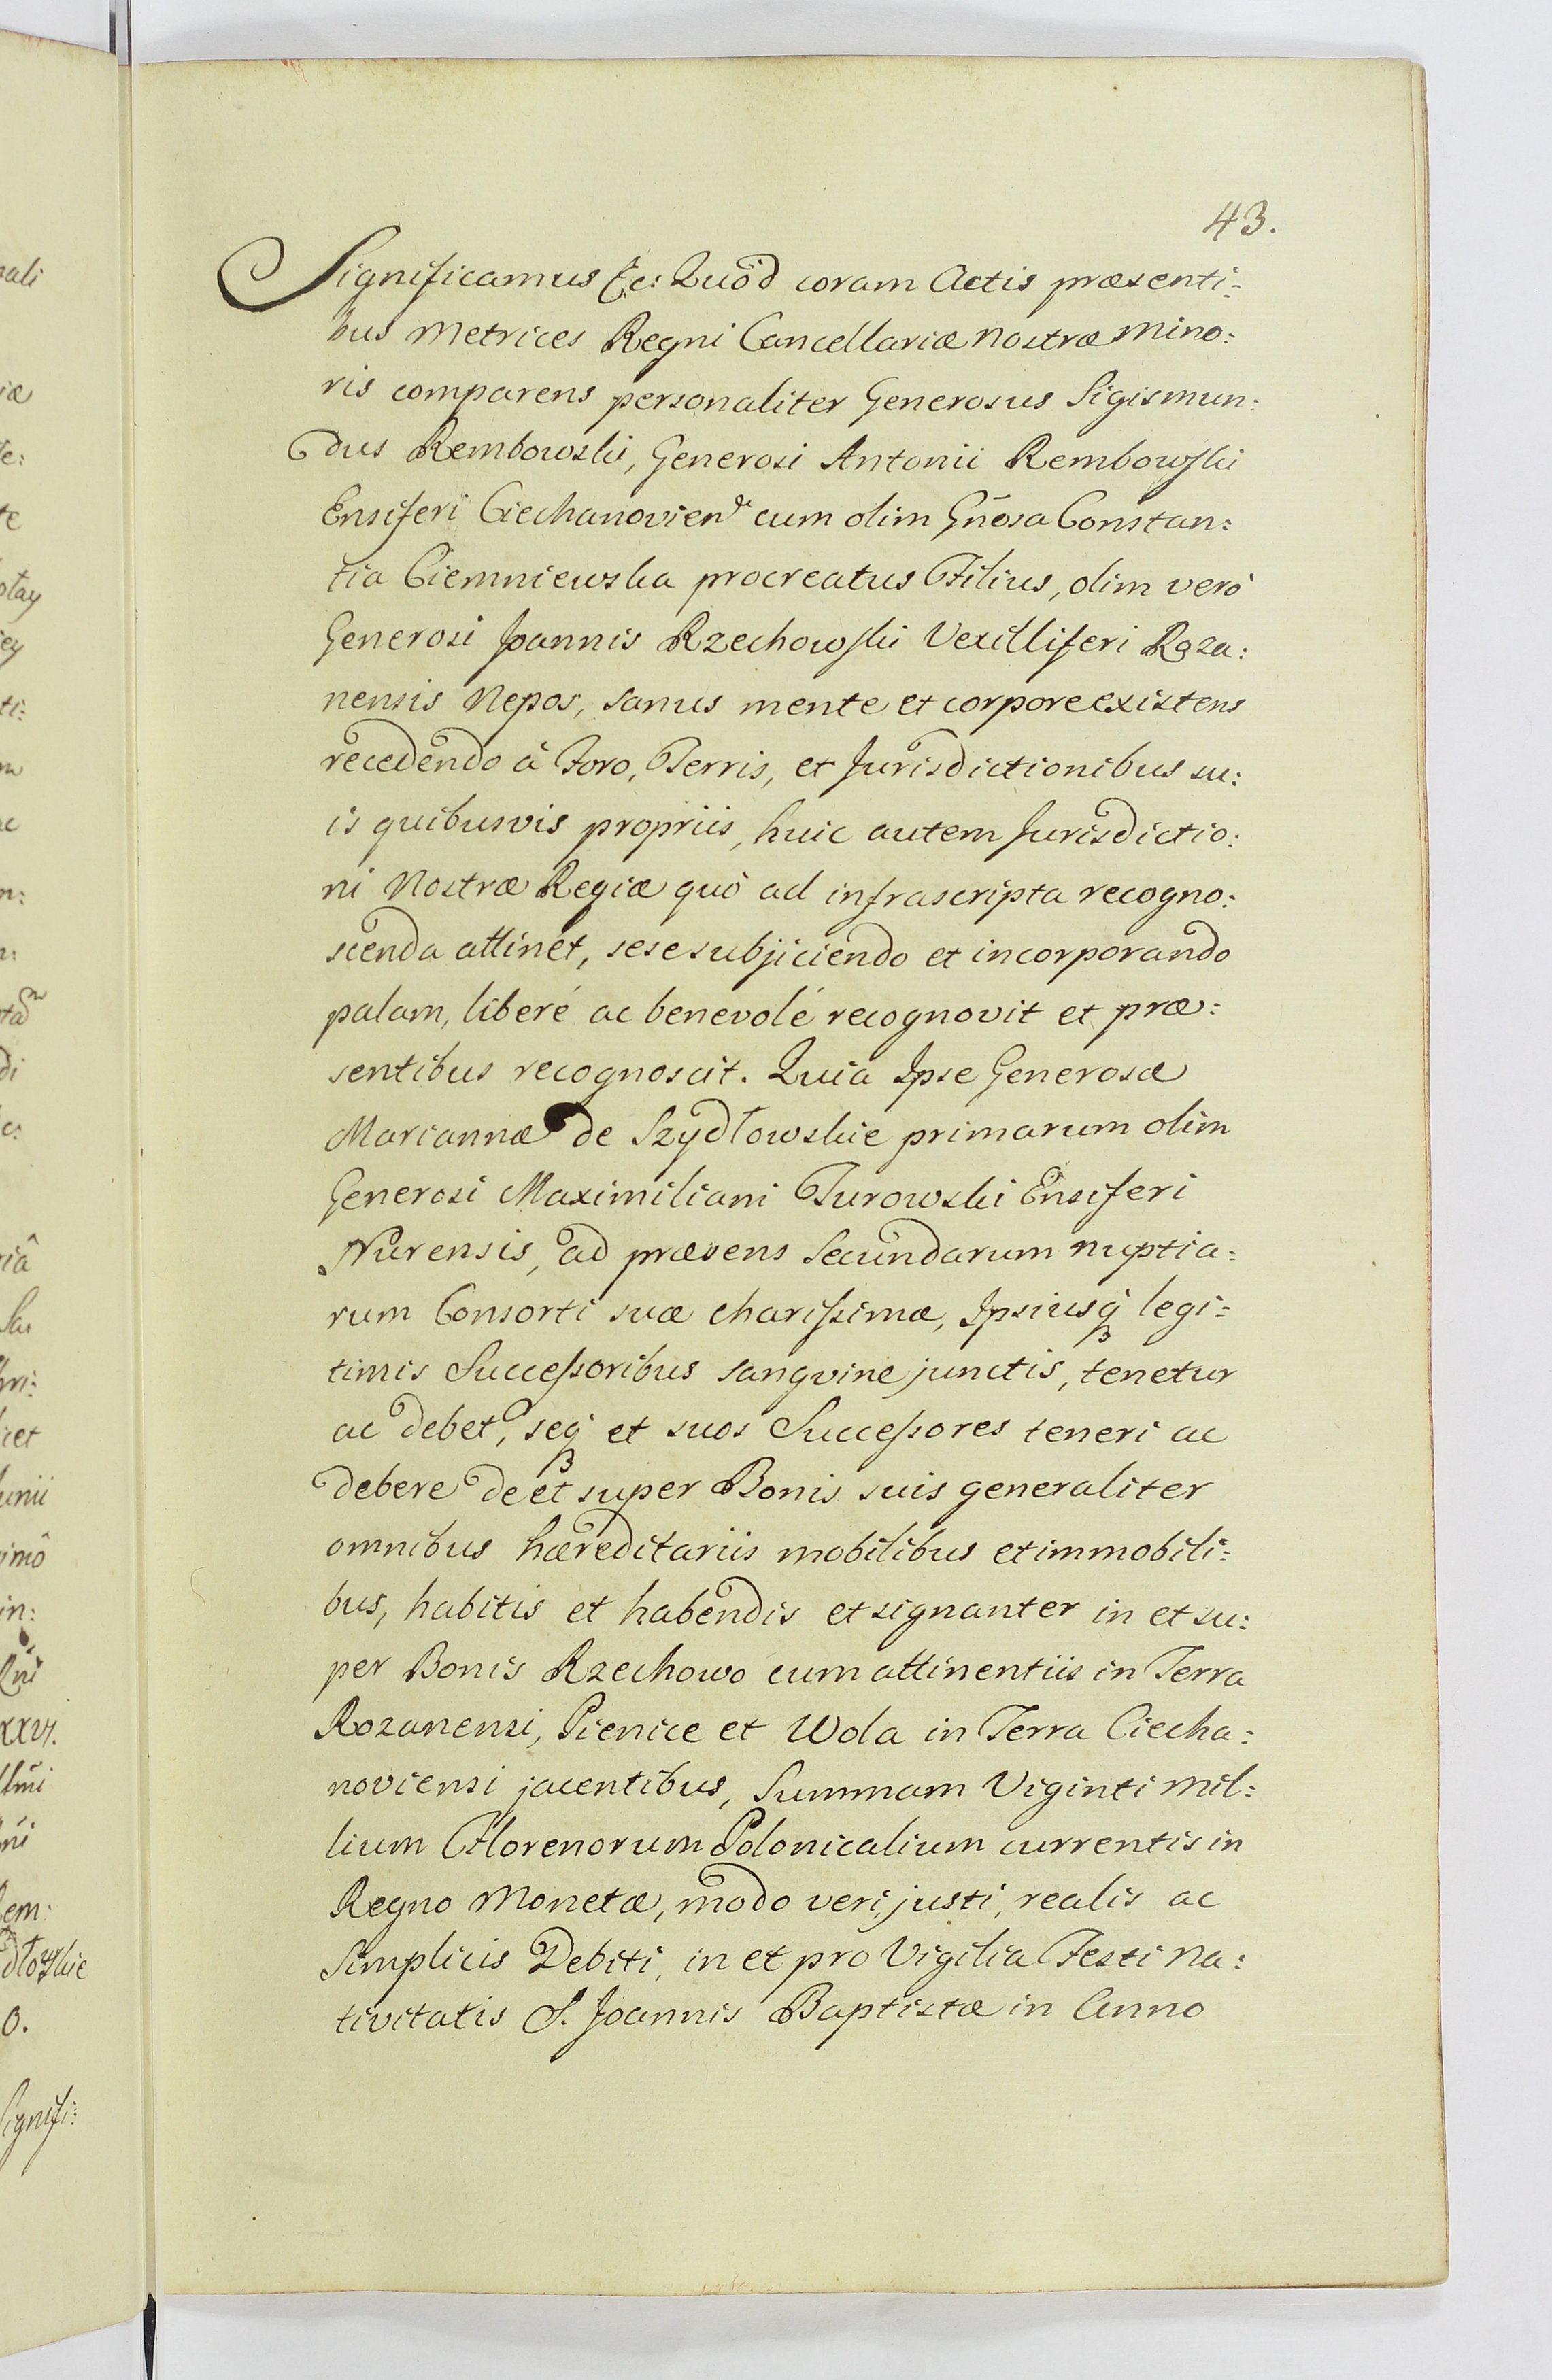 43.
Significamus &c: Quòd coram Actis præsenti=
bus Metrices Regni Cancellariæ Nostræ Mino:
ris comparens personaliter Generosus Sigismun:
dus Rembowski, Generosi Antonii Rembowski
Ensiferi Ciechanovien. cum olim Gñosa Constan:
tia Ciemniewska procreatus Filius, olim verò
Generosi Joannis Rzechowski Vexilliferi Roza:
nensis Nepos, sanus mente et corpore existens
recedendo à Foro, Terris, et Jurisdictionibus su:
is quibusvis propriis, huic autem Jurisdictio:
ni Nostræ Regiæ quò ad infrascripta recogno:
scenda attinet, sese subjiciendo et incorporando
palam, liberé ac benevolé recognovit et præ:
sentibus recognoscit. Quia Ipse Generosæ
Mariannæ de Szydłowskie primarum olim
Generosi Maximiliani Turowski Ensiferi
Nurensis, ad præsens Secundarum nuptia:
rum Consorti suæ charissimæ, Ipsiusq́ legi=
timis Successoribus sangvine junctis, tenetur
ac debet, seq́ et suos Successores teneri ac
debere de et super Bonis suis generaliter
omnibus hæreditariis mobilibus et immobili=
bus, habitis et habendis et signanter in et su:
per Bonis Rzechowo cum attinentiis in Terra
Rozanensi, Pienice et Wola in Terra Ciecha:
noviensi jacentibus, Summam Viginti Mil:
lium Florenorum Polonicalium currentis in
Regno Monetæ, modo veri, justi, realis ac
Simplicis Debiti, in et pro Vigilia Festi Na:
tivitatis S. Joannis Baptistæ in Anno